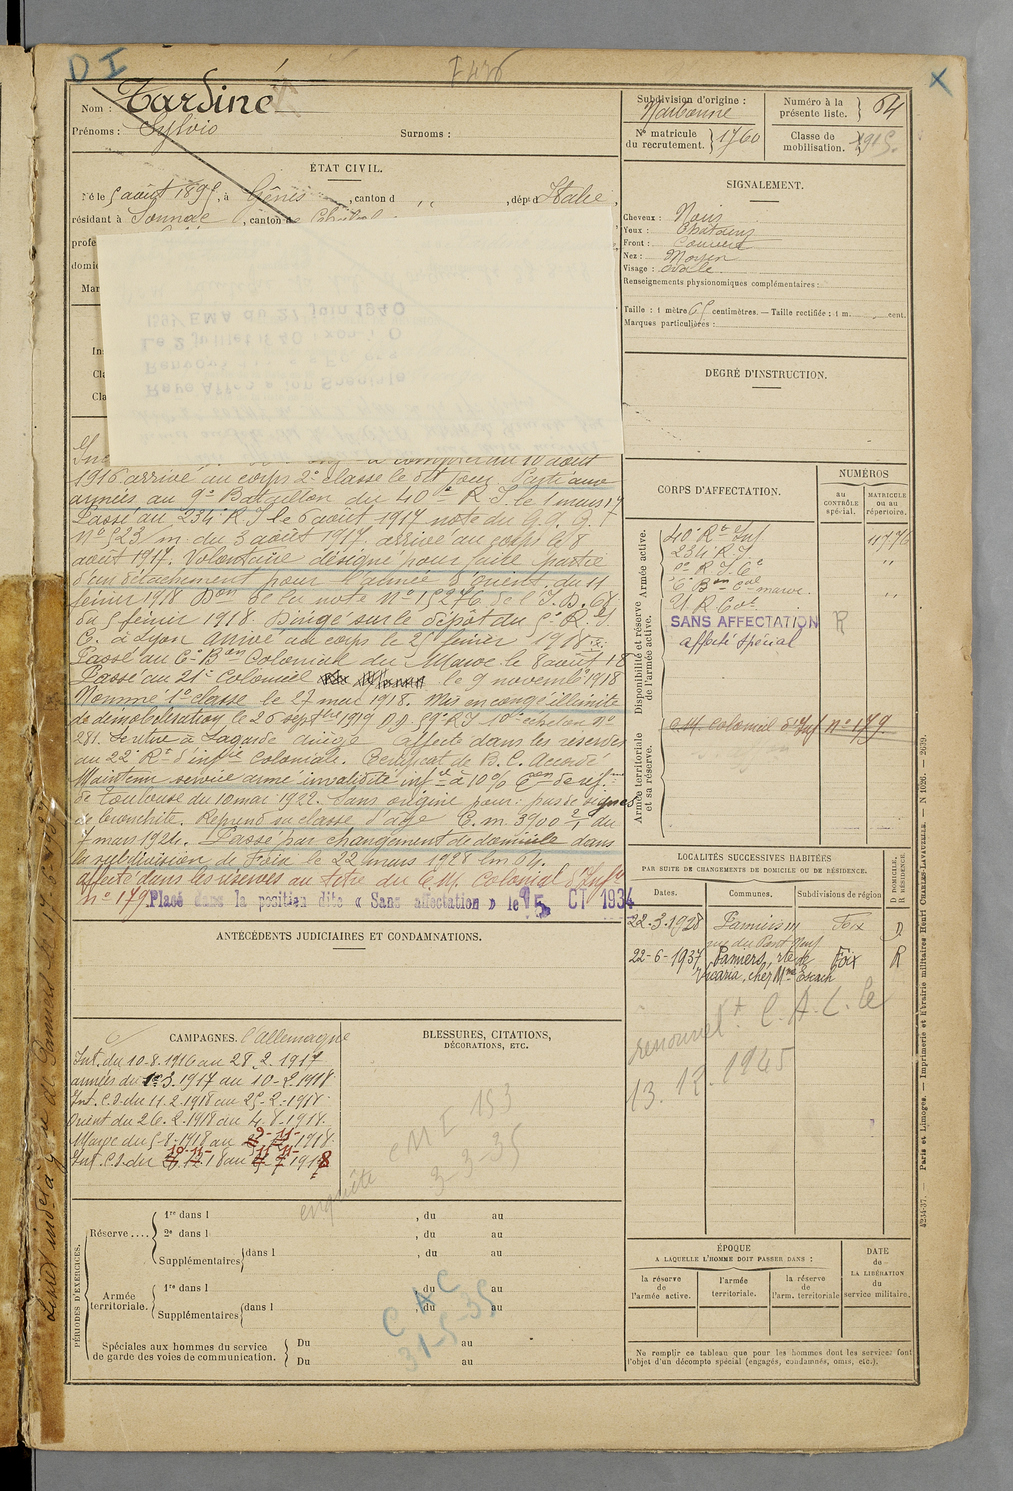 D I
Nom : Tardiné
Prénoms : Sylvio
Surnoms :
Subdivision d'origine :
Narbonne
Numéro à la
présente liste.
64
N° matricule
du recrutement.
1760
Classe de
mobilisation.
1915.
ÉTAT CIVIL.
Né le 5 août 1895, à Gênes, canton d , dépt d Italie,
résidant à Sonnac, canton de Chalabre
SIGNALEMENT.
Cheveux : Noirs
Yeux : Chatains
Front : Couvert
Nez : Moyen
Visage : Ovale
Renseignements physionomiques complémentaires :
Taille : 1 mètre 65 centimètres. — Taille rectifiée : 1 m. cent.
Marques particulières :
DEGRÉ D'INSTRUCTION.
à compter du 10 août
1916 arrivé au corps 2e classe le dit jour. Parti aux
armées au 9e Bataillon du 40e R I le 1 mars 17
Passé au 234e R I le 6 août 1917 note du G.Q.G.
N° 523 m. du 3 août 1917. arrivé au corps le 8
août 1917. Volontaire désigné pour faire partie
d'un détachement pour l'armée d'Orient, du 11
février 1918 Don de la note N° 15276 de l'I.D. 68
du 5 février 1918. Dirigé sur le dépot du 5e R.I.
C. à Lyon arrivé au corps le 25 février 1918.
Passé au 6e Bon Colonial du Maroc le 8 août 18
Passé au 21e Colonial le 9 novembre 1918
Nommé 1e classe le 27 mai 1918. Mis en congé illimité
de démobilisation le 26 septbre 1919 10e échelon N°
281. Se retire à Lagarde affecté dans les réserves
au 22e Rt d'infie Coloniale. Certificat de B.C. Accordé
Maintenu service armé invalidité infre à 10% Con de réf.
de Toulouse du 10 mai 1922. Sans origine pour: pas de signes
de bronchite. Reprend sa classe d'âge C.m. 3900 du
7 mars 1924. Passé par changement de domicile dans
la subdivision de Foix le 22 mars 1928
affecté dans les réserves au titre du C.M. Colonial d'Infie
N° 179. Placé dans la position dite « Sans affectation » le 15 OCT 1934
CORPS D'AFFECTATION.
NUMÉROS
au
CONTRÔLE
spécial.
MATRICULE
ou au
répertoire.
Armée active.
40e Rt Inf
234e R.I.
5e R.I.Ce
6e Bon Cal maroc.
21 R. Col.
Disponibilité et réserve
de l'armée active.
SANS AFFECTATION
R
affecté spécial
Armée territoriale
et sa réserve.
C.M. colonial d'Inf N° 179
LOCALITÉS SUCCESSIVES HABITÉES
PAR SUITE DE CHANGEMENTS DE DOMICILE OU DE RÉSIDENCE.
Dates.
Communes.
Subdivisions de région
D DOMICILE,
R RÉSIDENCE.
22-3-1928 Pamiers Foix D
rue du Pont Neuf
22-6-1937 Pamiers, rte de Foix R
Vicaria, chez Mme Escach
13.12.1945
ANTÉCÉDENTS JUDICIAIRES ET CONDAMNATIONS.
CAMPAGNES. c/ l'Allemagne
Int. du 10-8-1916 au 28.2.1917
armées du 1e 3.1917 au 10-2.1918
Int. C.S. du 11.2.1918 au 25-2-1918.
Orient du 26.2.1918 au 4.8-1918.
Maroc du 5-8-1918 au 9-11-1918.
BLESSURES, CITATIONS,
DÉCORATIONS, ETC.
CMI 153
3-3-35
enquête
PÉRIODES D'EXERCICES.
Réserve....
1re dans l , du au
2e dans l , du au
Supplémentaires dans l , du au
Armée
territoriale.
1re dans l , du au
Supplémentaires dans l , du au
C A C
31-5-35
Spéciales aux hommes du service
de garde des voies de communication.
Du au
Du au
ÉPOQUE
A LAQUELLE L'HOMME DOIT PASSER DANS :
la réserve
de
l'armée active.
l'armée
territoriale.
la réserve
de
l'arm. territoriale
DATE
de
LA LIBÉRATION
du
service militaire.
Ne remplir ce tableau que pour les hommes dont les services font
l'objet d'un décompte spécial (engagés, condamnés, omis, etc.).
4234-37. — Paris et Limoges. — Imprimerie et Librairie militaires Henri CHARLES-LAVAUZELLE. — N 1026. — 2639.